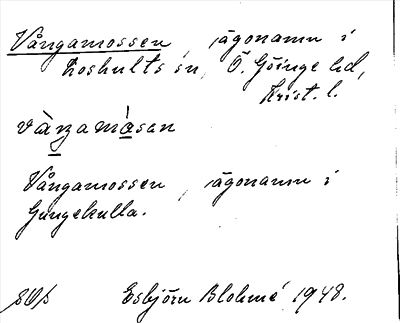 Vångamossen, ägonamn i
Loshults sn, Ö. Göinge hd,
Krist. l.
Vångamossen, ägonamn i
Gungekulla.
Esbjörn Blohmé 1948.